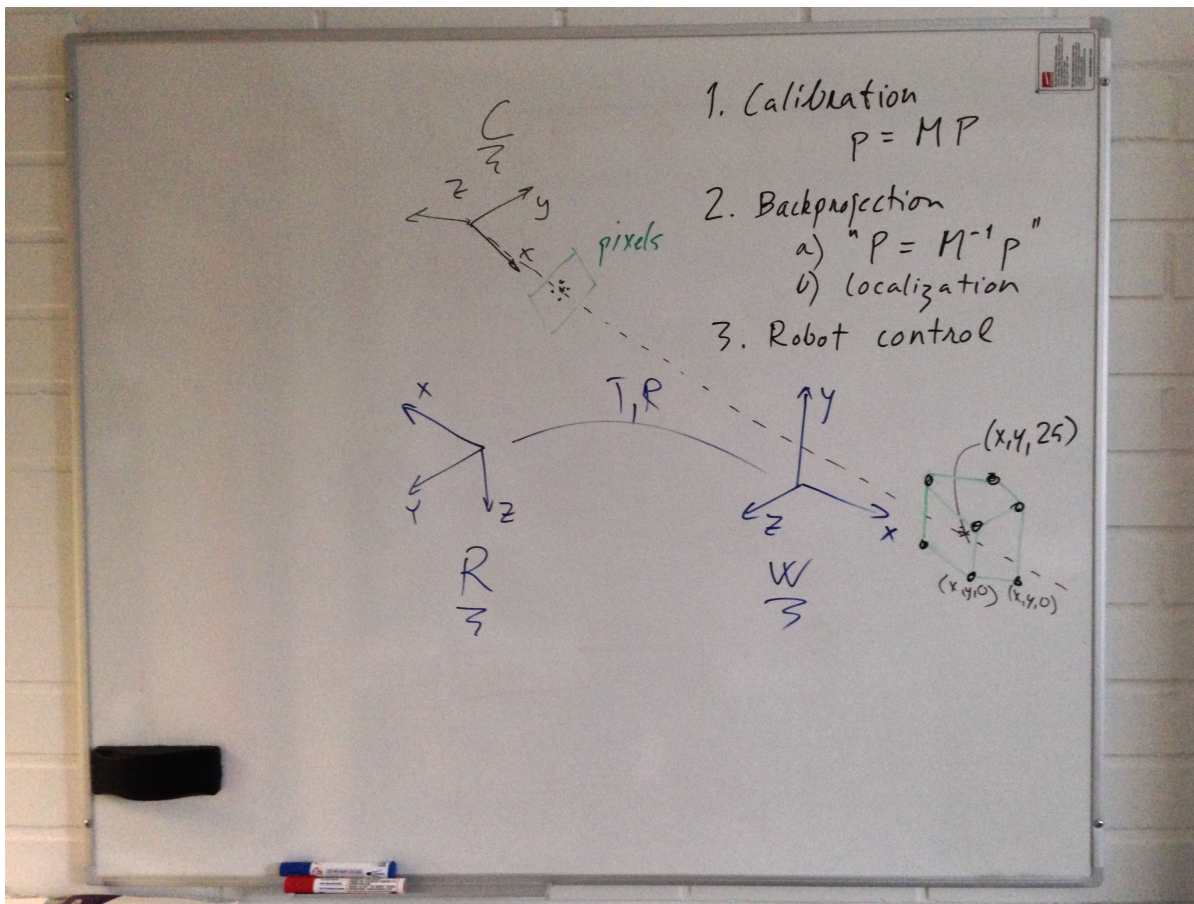 1. Calibration
p = M P
2. Backprojection
a) "P = M⁻¹ p"
b) localization
3. Robot control
C
z
y
x
pixels
T, R
x
Y
Z
R
y
z
x
W
(x,y,25)
(x,y,0) (x,y,0)